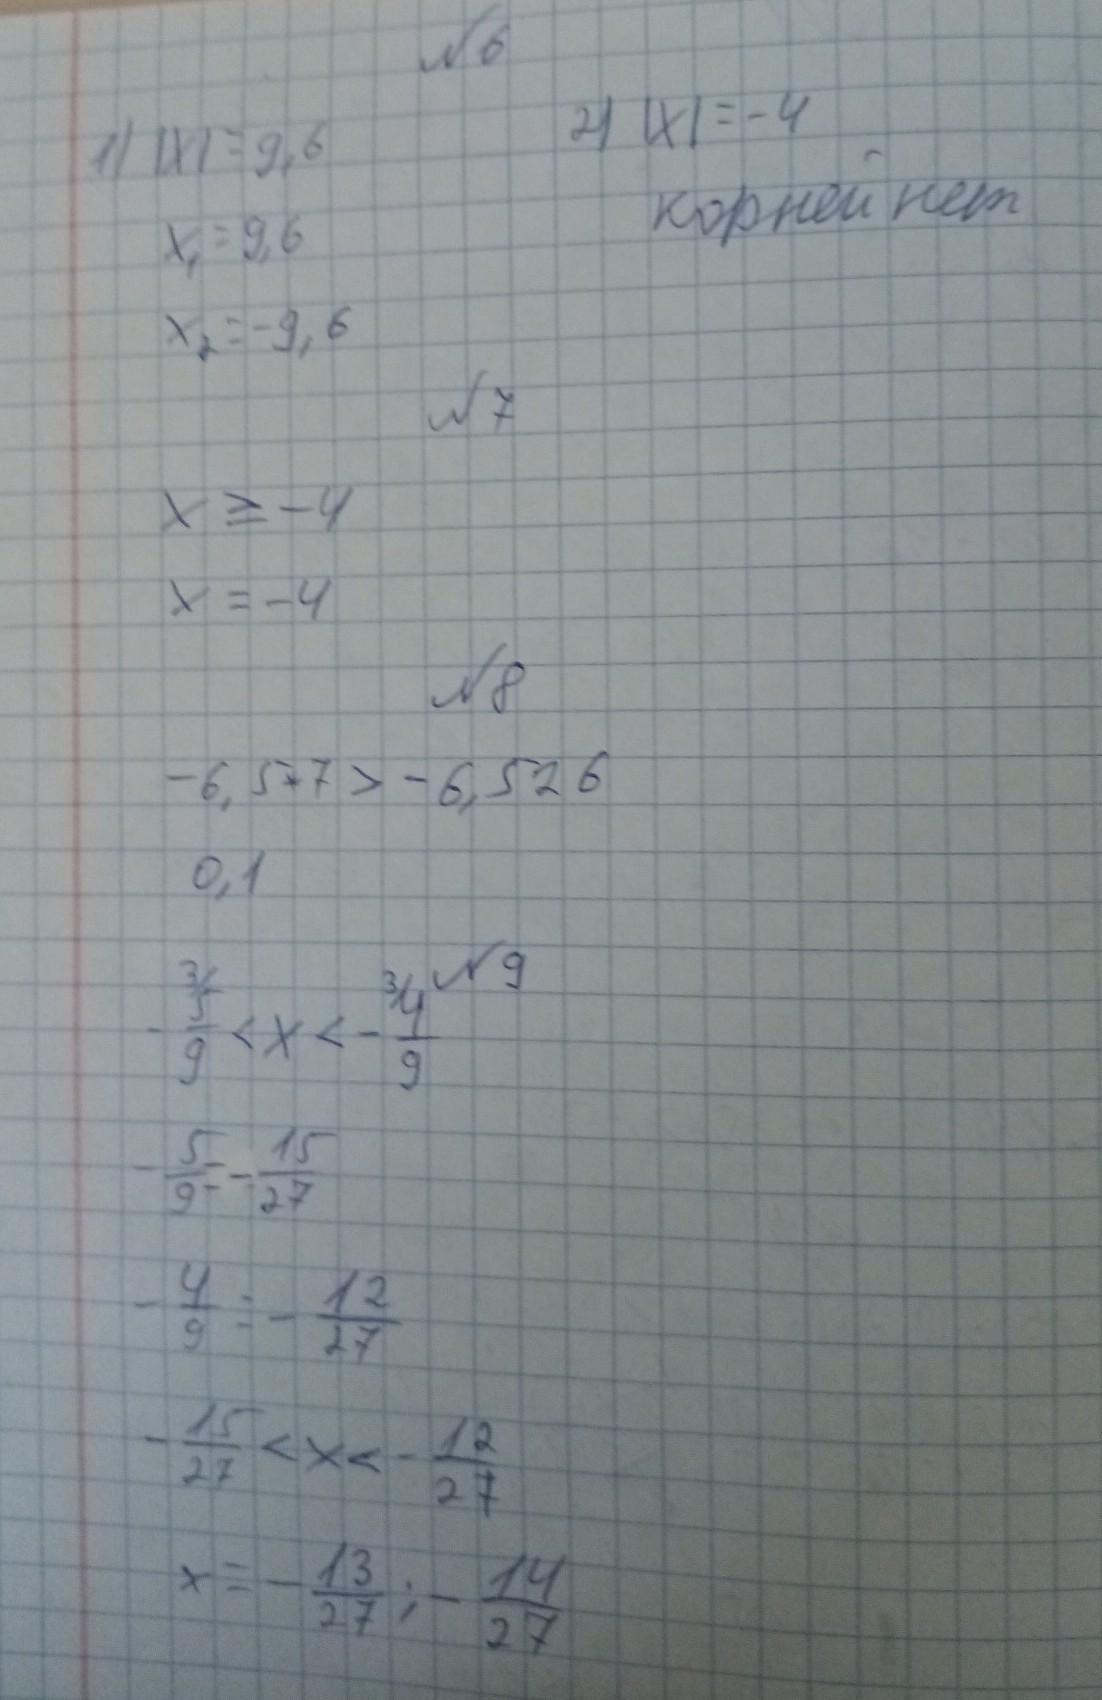 №6
1) |x|=9,6
2) |x|=-4
x₁=9,6
корней нет
x₂=-9,6
№7
x ≥ -4
x = -4
№8
-6,5*7 > -6,526
0,1
№9
-5/9 < x < -4/9
-5/9 = -15/27
-4/9 = -12/27
-15/27 < x < -12/27
x = -13/27 ; -14/27